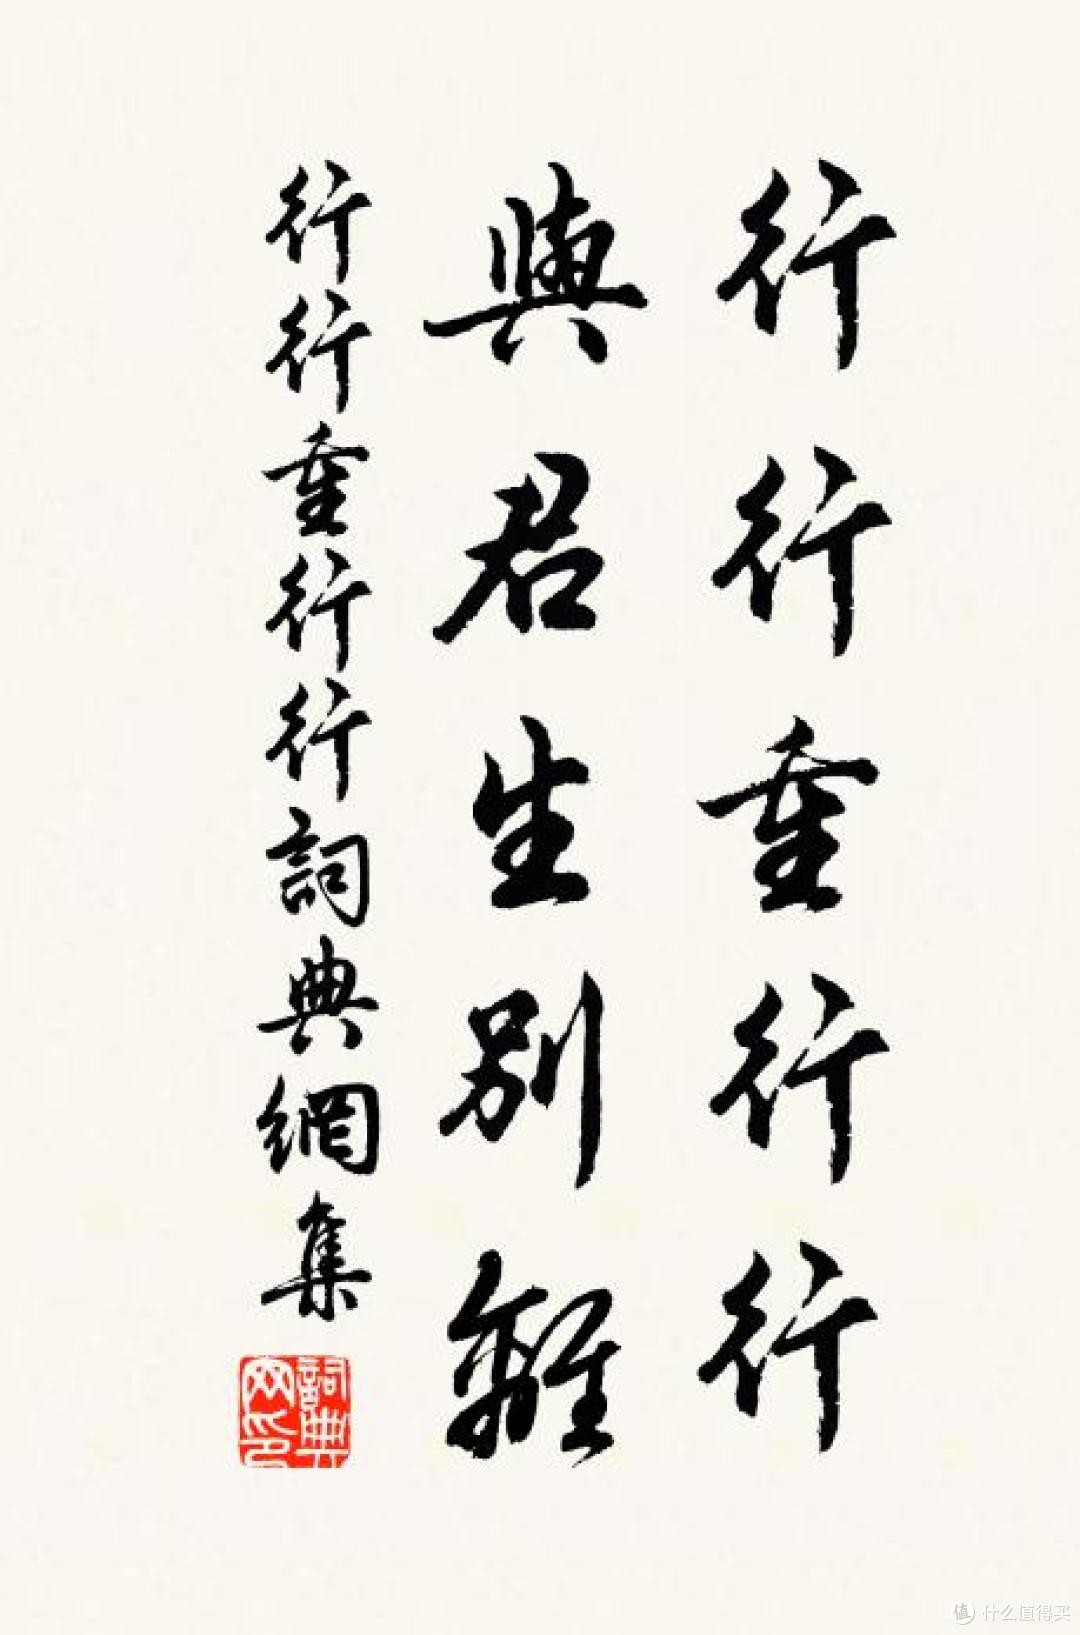 行行重行行
與君生別離
行行重行行詞典網集
詞典网印
值 什么值得买